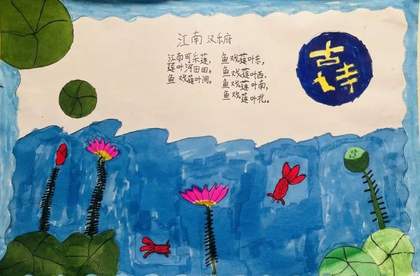 江南 汉乐府
江南可采莲，
莲叶河田田。
鱼戏莲叶间。
鱼戏莲叶东，
鱼戏莲叶西，
鱼戏莲叶南，
鱼戏莲叶北。
古诗